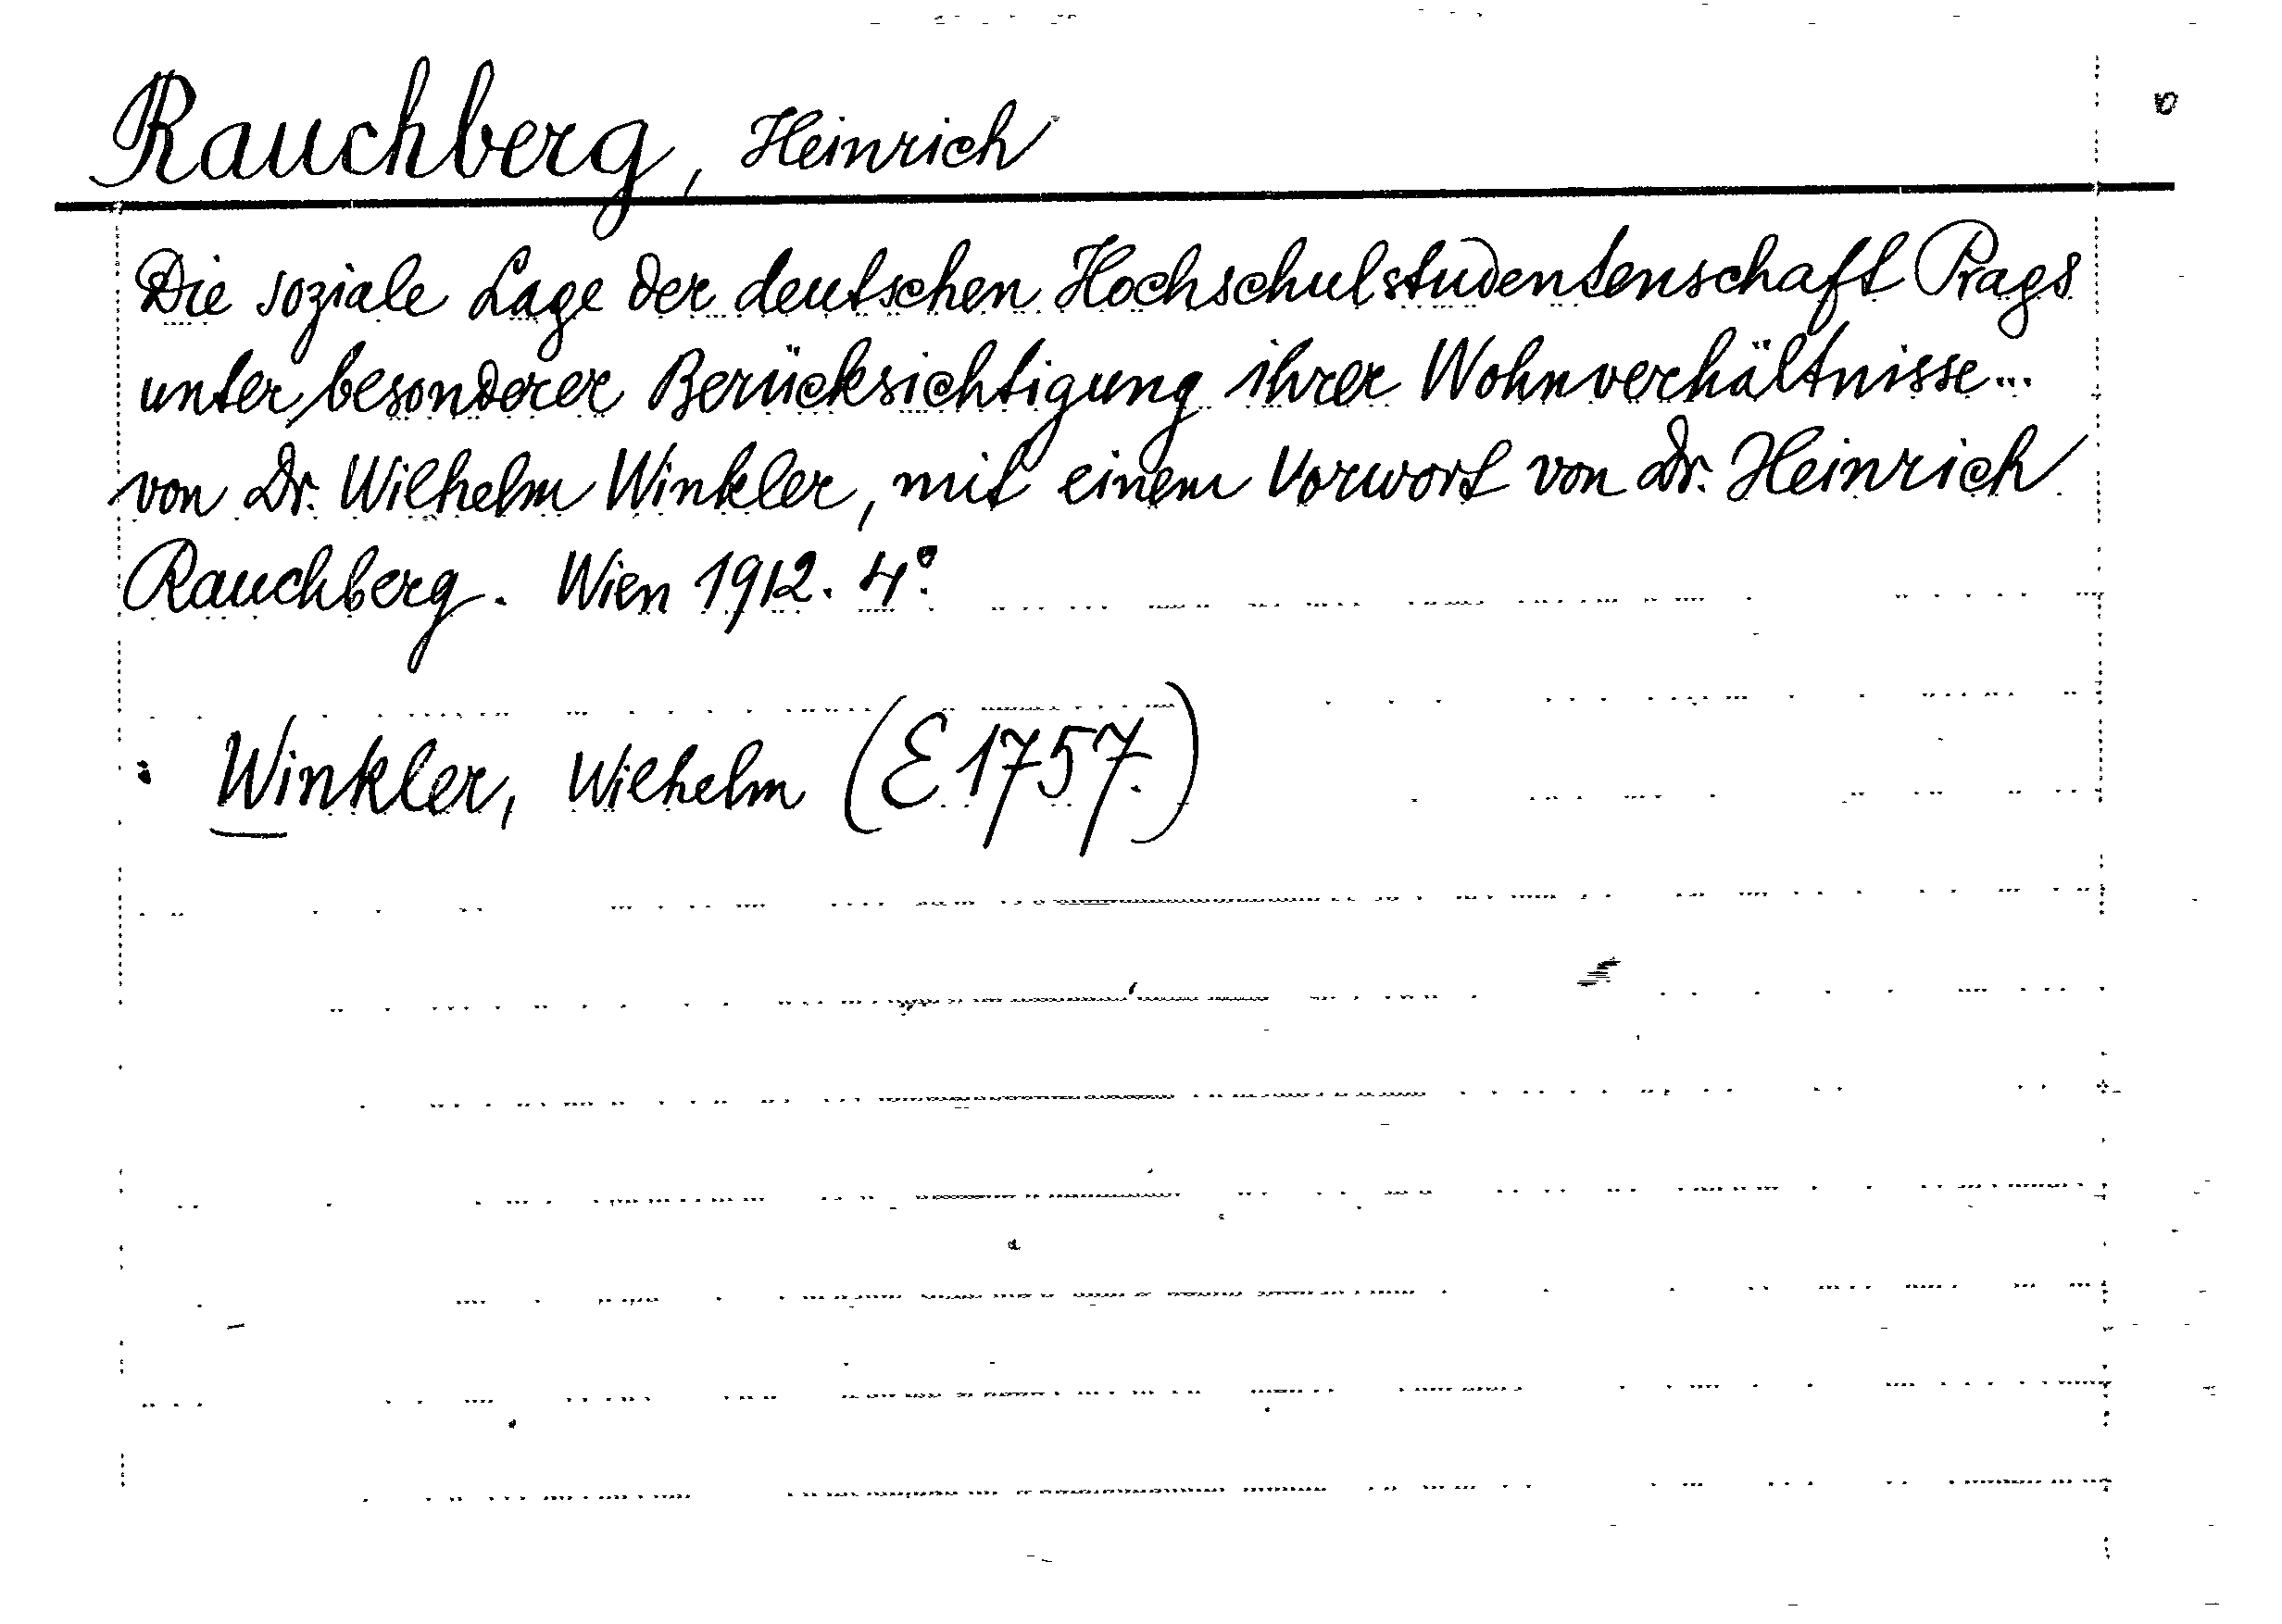 Rauchberg, Heinrich
Die soziale Lage der deutschen Hochschulstudentenschaft Prags
unter besonderer Berücksichtigung ihrer Wohnverhältnisse...
von Dr. Wilhelm Winkler, mit einem Vorwort von Dr. Heinrich
Rauchberg. Wien 1912. 4°.
Winkler, Wilhelm (E 1757.)